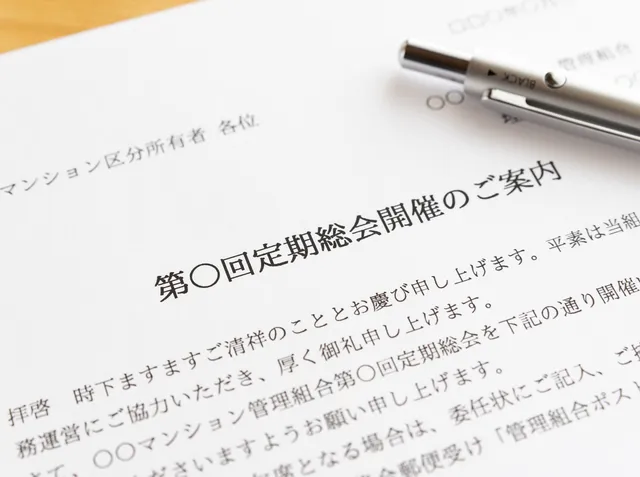 管理組合
〇〇
マンション区分所有者 各位
第〇回定期総会開催のご案内
拝啓 時下ますますご清祥のこととお慶び申し上げます。平素は当組
務運営にご協力いただき、厚く御礼申し上げます。
〇〇マンション管理組合第〇回定期総会を下記の通り開催
くださいますようお願い申し上げます。
席となる場合は、委任状にご記入、ご
郵便受け「管理組合ポス
BLACK